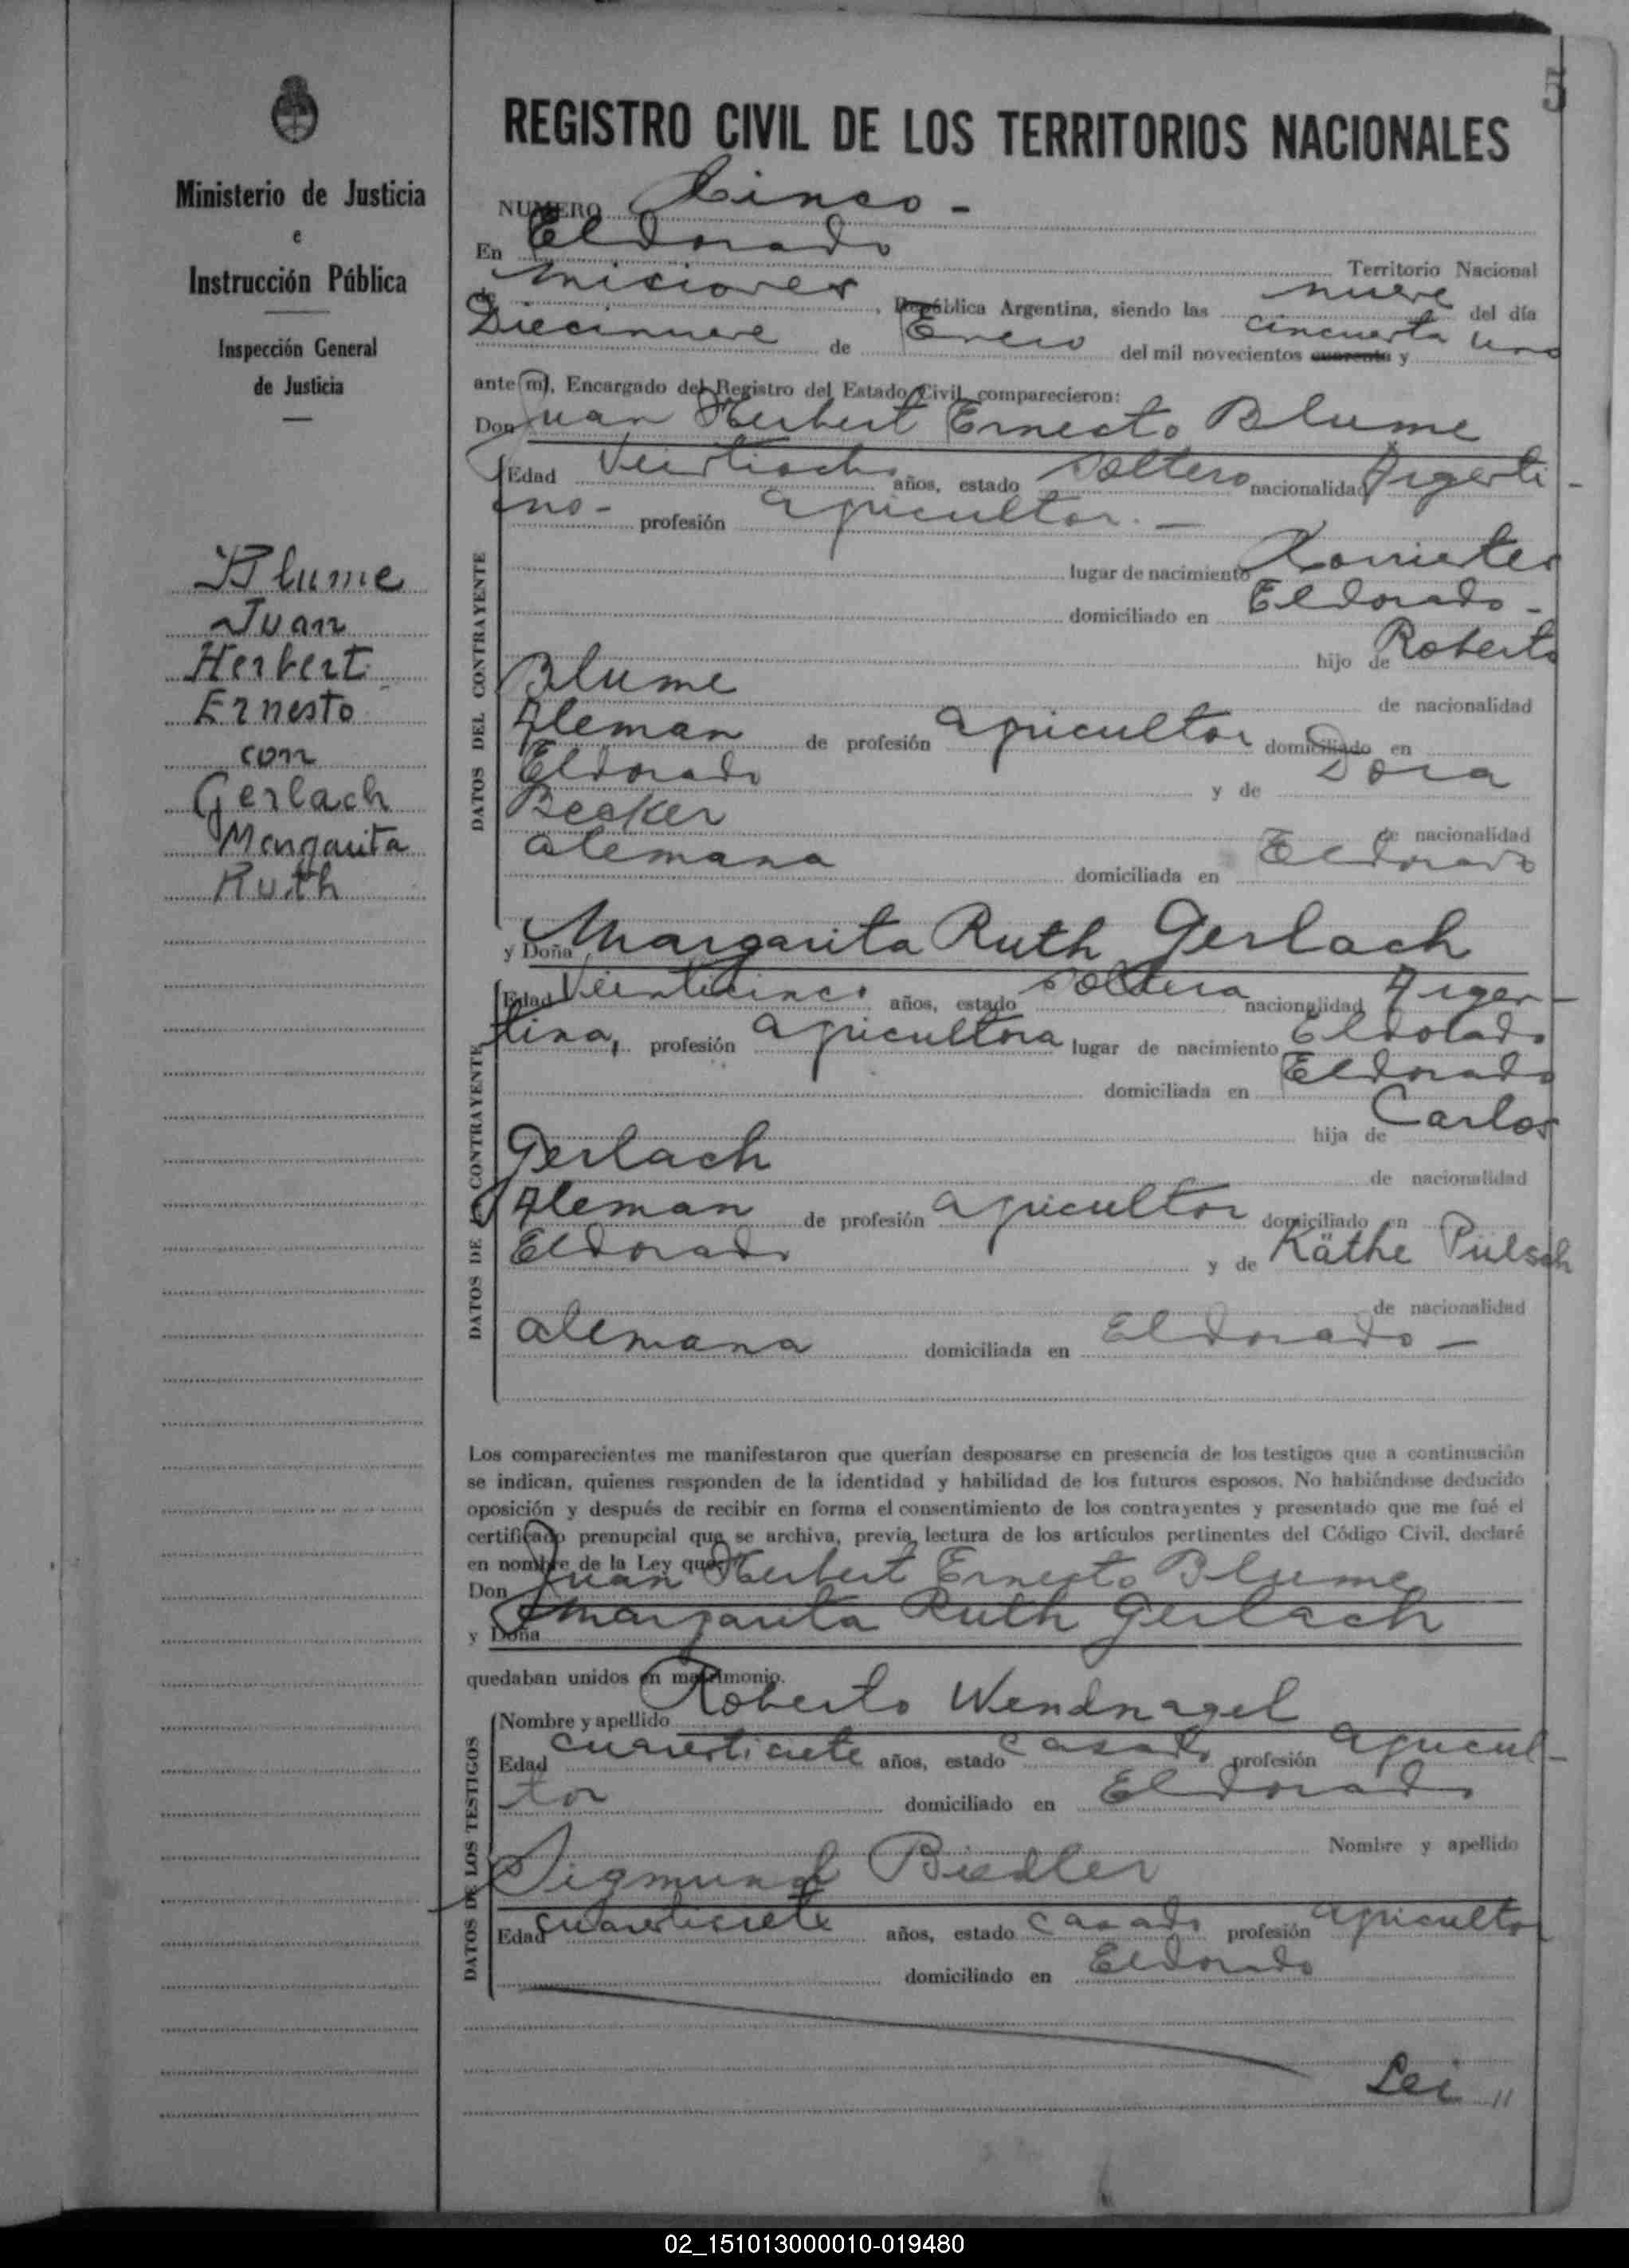 5
Ministerio de Justicia
e
Instrucción Pública
Inspección General
de Justicia
Blume
Juan
Herbert
Ernesto
con
Gerlach
Margarita
Ruth
REGISTRO CIVIL DE LOS TERRITORIOS NACIONALES
NUMERO Cinco -
En Eldorado Territorio Nacional
de Miciones, República Argentina, siendo las nueve del día
Diecinueve de Enero del mil novecientos cuarenta y cincuenta uno
ante mí, Encargado del Registro del Estado Civil, comparecieron:
Don Juan Herbert Ernesto Blume
DATOS DEL CONTRAYENTE
Edad Veintiocho años, estado soltero nacionalidad Argenti-
no- profesión agricultor. -
lugar de nacimiento Corrientes
domiciliado en Eldorado -
hijo de Roberto
Blume de nacionalidad
Aleman de profesión agricultor domiciliado en
Eldorado y de Dora
Becker de nacionalidad
alemana domiciliada en Eldorado
y Doña Margarita Ruth Gerlach
DATOS DE LA CONTRAYENTE
Edad Veinticinco años, estado soltera nacionalidad Argen-
tina, profesión agricultora lugar de nacimiento Eldorado
domiciliada en Eldorado
hija de Carlos
Gerlach de nacionalidad
Aleman de profesión agricultor domiciliado en
Eldorado y de Käthe Pülsch
de nacionalidad
alemana domiciliada en Eldorado -
Los comparecientes me manifestaron que querían desposarse en presencia de los testigos que a continuación
se indican, quienes responden de la identidad y habilidad de los futuros esposos. No habiéndose deducido
oposición y después de recibir en forma el consentimiento de los contrayentes y presentado que me fué el
certificado prenupcial que se archiva, previa lectura de los artículos pertinentes del Código Civil, declaré
en nombre de la Ley que:
Don Juan Herbert Ernesto Blume
y Doña Margarita Ruth Gerlach
quedaban unidos en matrimonio.
DATOS DE LOS TESTIGOS
Nombre y apellido Roberto Wendnagel
Edad cuarentisiete años, estado casado profesión agricul-
tor domiciliado en Eldorado
Nombre y apellido
Sigmund Biedler
Edad cuarentisiete años, estado casado profesión agricultor
domiciliado en Eldorado
Lei //
02_151013000010-019480